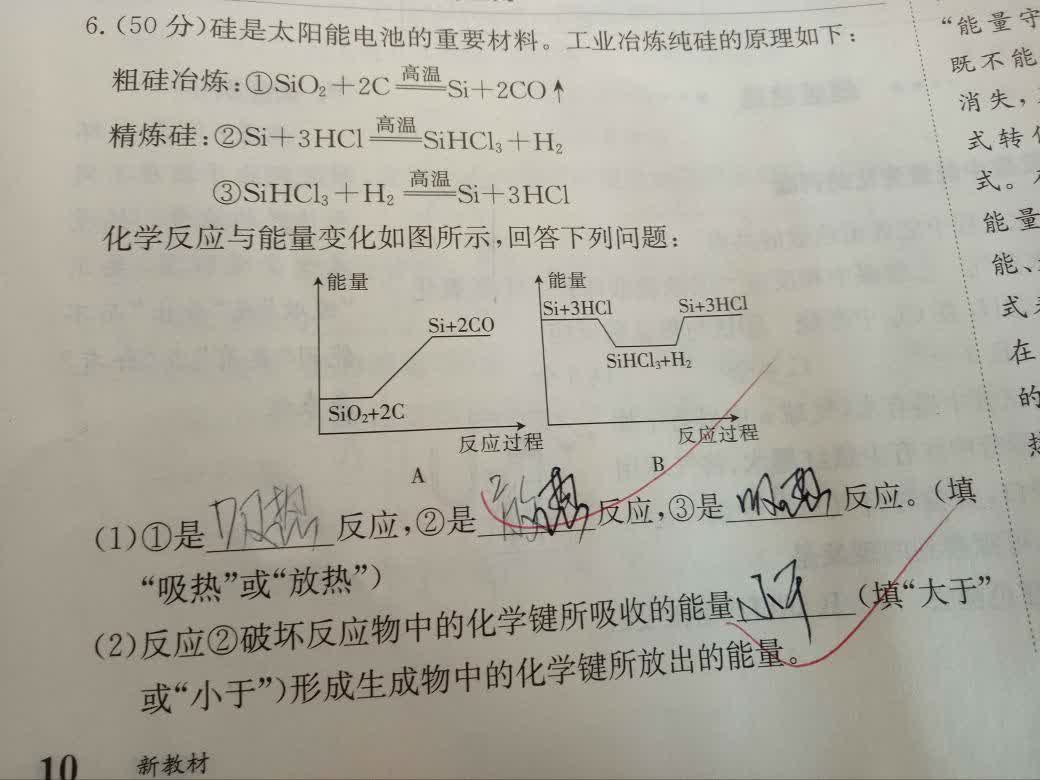 6.(50分)硅是太阳能电池的重要材料。工业冶炼纯硅的原理如下:
粗硅冶炼:①SiO₂+2C 高温 Si+2CO↑
精炼硅:②Si+3HCl 高温 SiHCl₃+H₂
③SiHCl₃+H₂ 高温 Si+3HCl
化学反应与能量变化如图所示,回答下列问题:
能量
Si+2CO
SiO₂+2C
反应过程
A
能量
Si+3HCl
Si+3HCl
SiHCl₃+H₂
反应过程
B
(1)①是吸热反应,②是放热反应,③是吸热反应。(填
“吸热”或“放热”)
(2)反应②破坏反应物中的化学键所吸收的能量小于(填“大于”
或“小于”)形成生成物中的化学键所放出的能量。
10 新教材
“能量守
既不能
消失,
式转
式。
能量
能、
式
在
的